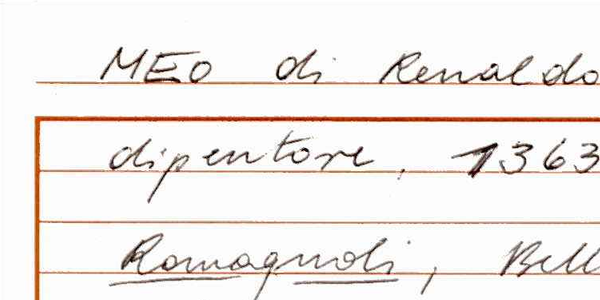 MEO di Renaldo
dipentore, 1363
Romagnoli, Bell